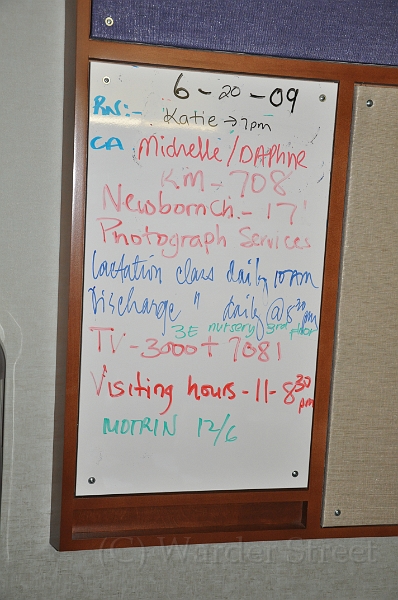 6-20-09
RN:- Katie → 7pm
CA Michelle/DAPHNE
KM- 708
Newborn Ch.- 17
Photograph Services
Lactation class daily 10 AM
Discharge " daily @ 8 30 pm
3E nursery 3rd floor
TV-3000+ 7081
Visiting hours-11-8 30 pm
MOTRIN 12/6
(C) Warder Street